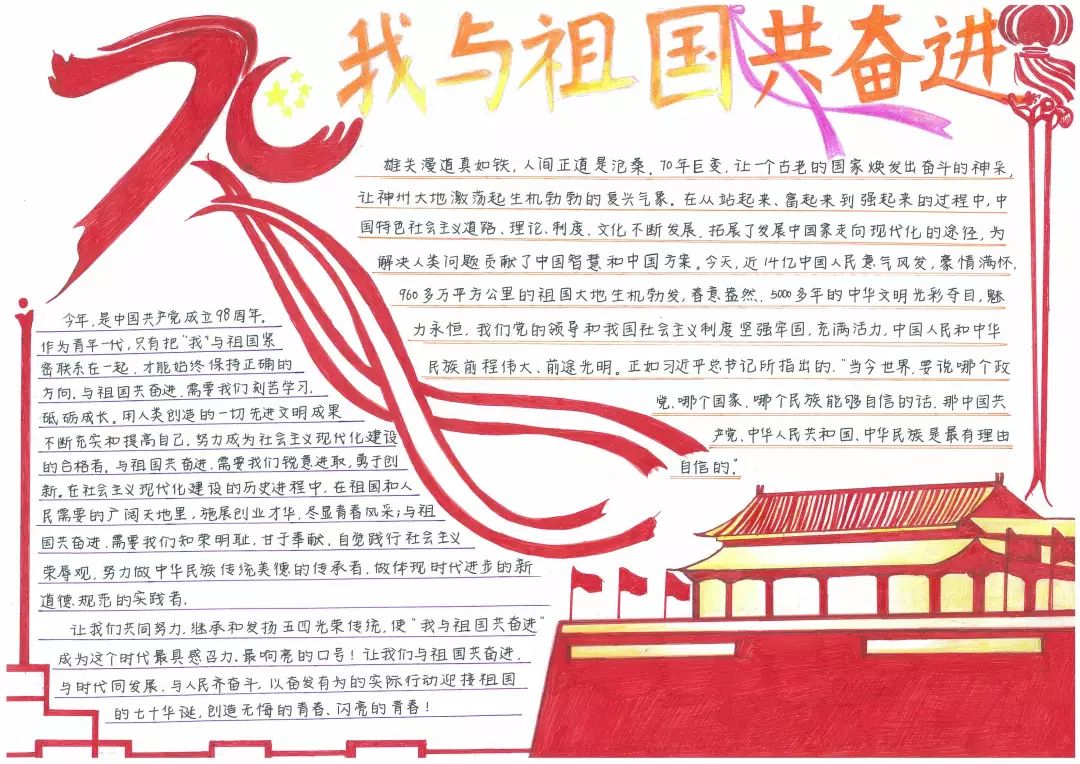 70
我与祖国共奋进
雄关漫道真如铁，人间正道是沧桑。70年巨变，让一个古老的国家焕发出奋斗的神采，
让神州大地激荡起生机勃勃的复兴气象。在从站起来、富起来到强起来的过程中，中
国特色社会主义道路、理论、制度、文化不断发展，拓展了发展中国家走向现代化的途径，为
解决人类问题贡献了中国智慧和中国方案。今天，近14亿中国人民意气风发，豪情满怀，
960多万平方公里的祖国大地生机勃发，春意盎然，5000多年的中华文明光彩夺目，魅
力永恒，我们党的领导和我国社会主义制度坚强牢固，充满活力，中国人民和中华
民族前程伟大、前途光明。正如习近平总书记所指出的，“当今世界，要说哪个政
党、哪个国家、哪个民族能够自信的话，那中国共
产党、中华人民共和国、中华民族是最有理由
自信的。”
今年，是中国共产党成立98周年。
作为青年一代，只有把“我”与祖国紧
密联系在一起，才能始终保持正确的
方向。与祖国共奋进，需要我们刻苦学习，
砥砺成长。用人类创造的一切先进文明成果
不断充实和提高自己，努力成为社会主义现代化建设
的合格者。与祖国共奋进，需要我们锐意进取，勇于创
新。在社会主义现代化建设的历史进程中，在祖国和人
民需要的广阔天地里，施展创业才华，尽显青春风采；与祖
国共奋进，需要我们知荣明耻，甘于奉献，自觉践行社会主义
荣辱观，努力做中华民族传统美德的传承者，做体现时代进步的新
道德规范的实践者。
让我们共同努力，继承和发扬五四光荣传统，使“我与祖国共奋进”
成为这个时代最具感召力、最响亮的口号！让我们与祖国共奋进，
与时代同发展，与人民齐奋斗，以奋发有为的实际行动迎接祖国
的七十华诞，创造无悔的青春、闪亮的青春！